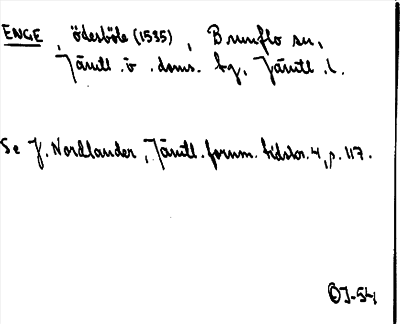 ENGE, öderböle (1535), Brunflo sn,
Jämtl. v. doms. bg, Jämtl. l.
Se J. Nordlander, Jämtl. fornm. tidskr. 4, p. 117.
OJ-54